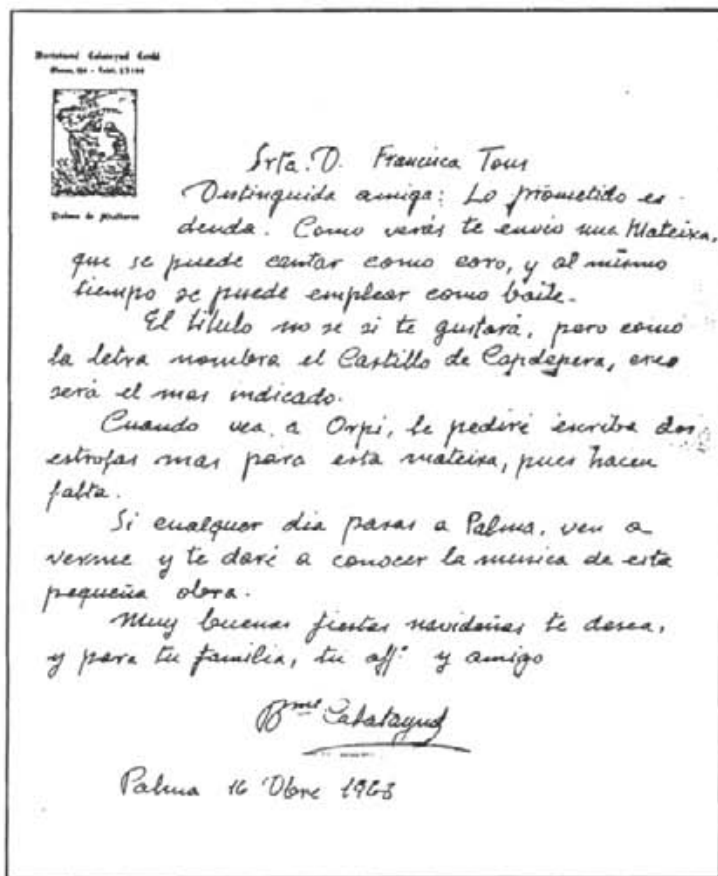 Bartolomé Calatayud Cerdá
Palma de Mallorca
Srta. D. Francisca Tous
Distinguida amiga: Lo prometido es
deuda. Como verás te envio una Mateixa,
que se puede cantar como coro, y al mismo
tiempo se puede emplear como baile.
El titulo no se si te gustará, pero como
la letra nombra el Castillo de Capdepera, creo
será el mas indicado.
Cuando vea a Orpi, le pediré escriba dos
estrofas mas para esta mateixa, pues hacen
falta.
Si cualquer dia pasas a Palma, ven a
verme y te daré a conocer la musica de esta
pequeña obra.
Muy buenas fiestas navideñas te desea,
y para tu familia, tu aff.º y amigo
Bmé Calatayud
Palma 16 Dbre 1968